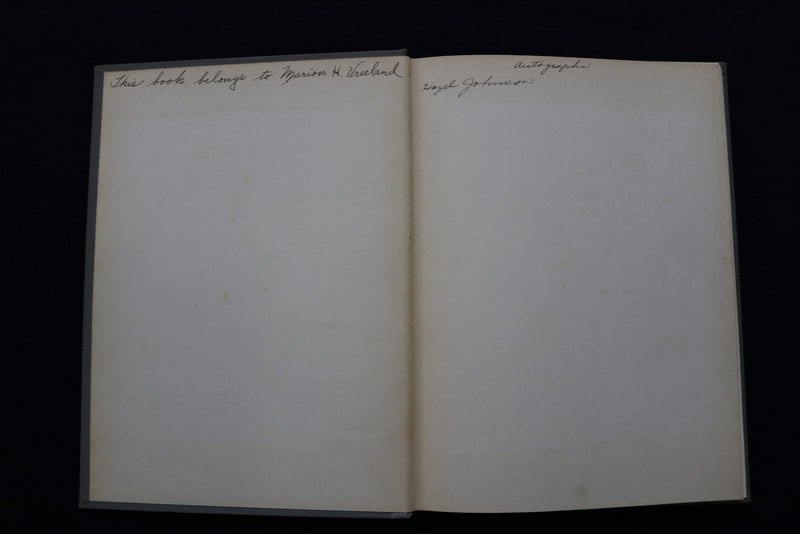 This book belongs to Marion H. Vreeland
Autographs
Hazel Johnson